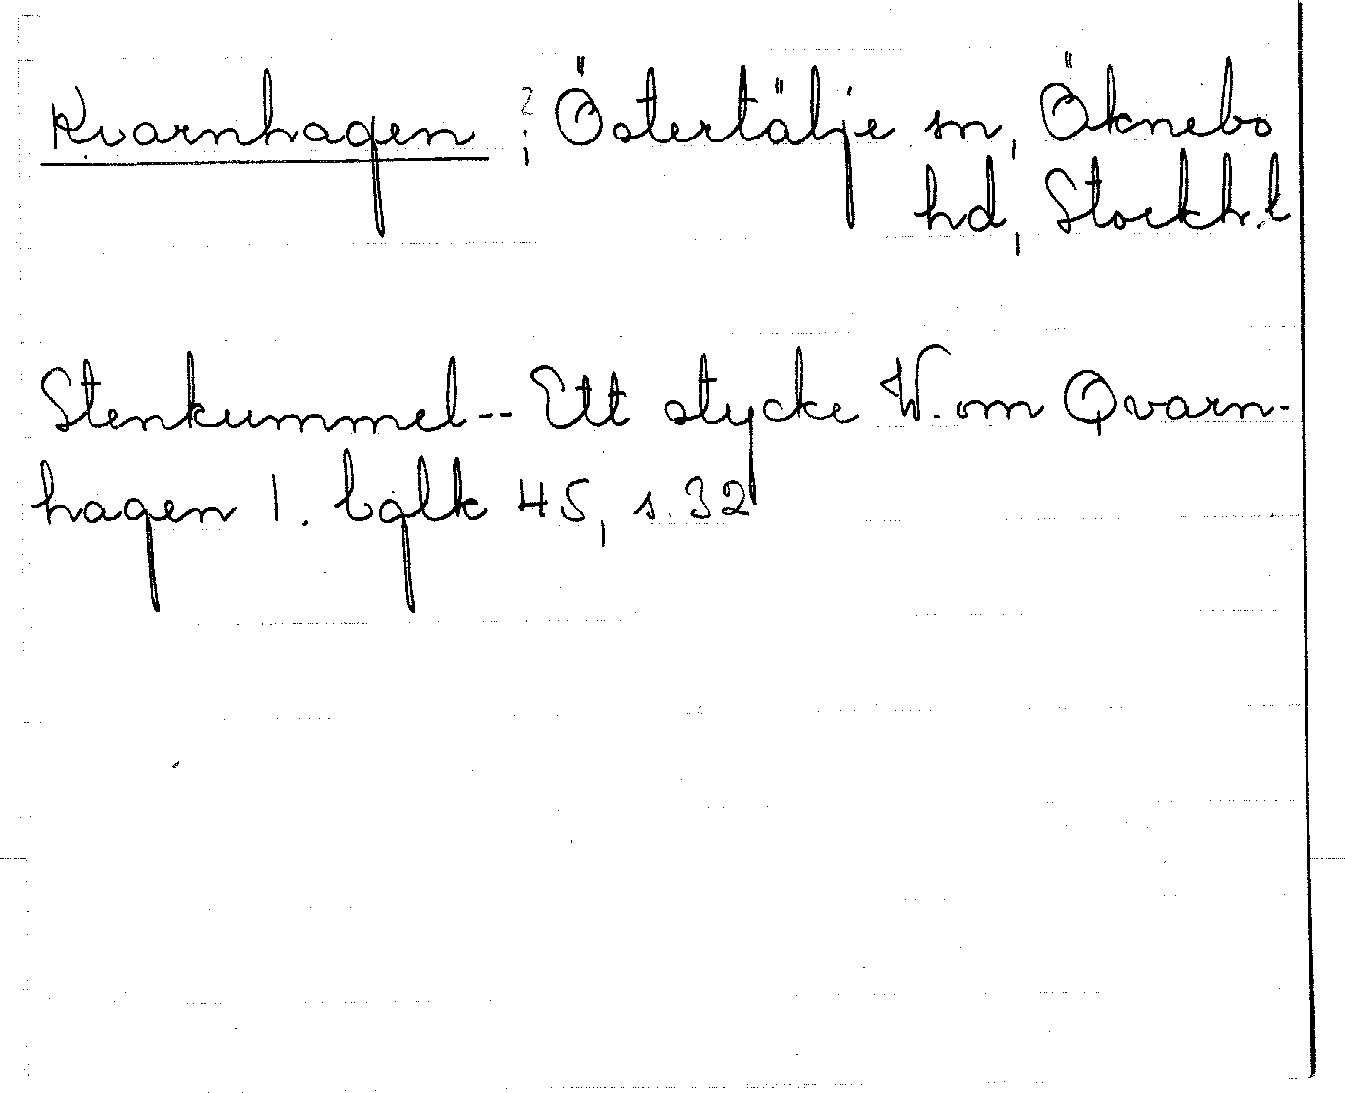 Kvarnhagen ? i Östertälje sn, Öknebo
hd, Stockh.l
Stenkummel-- Ett stycke W. om Qvarn-
hagen 1. bglk 45, s. 32